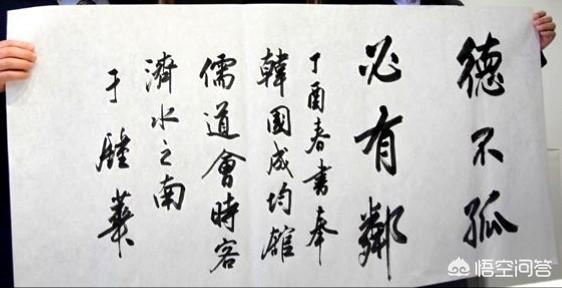 德不孤
必有鄰
丁酉春書奉
韓國成均館
儒道會時客
濟水之南
于鍾華
悟空问答